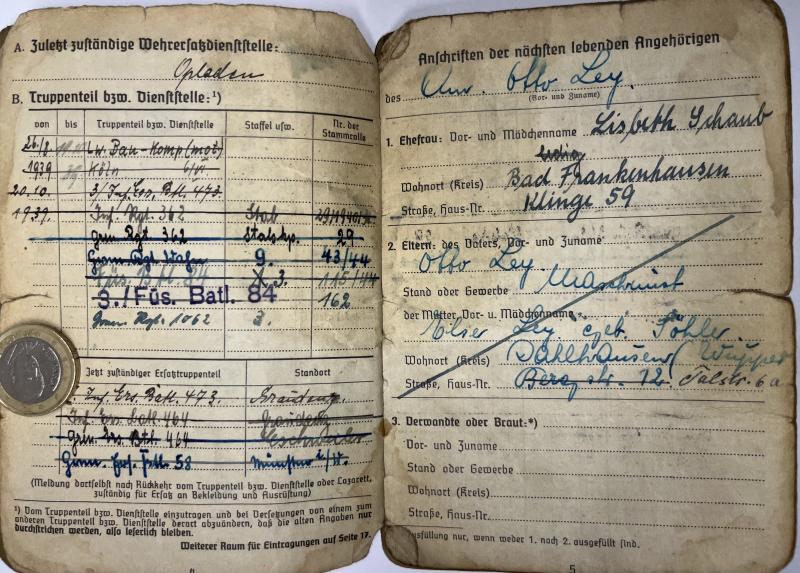 A. Zuletzt zuständige Wehrersatzdienststelle:
Opladen
B. Truppenteil bzw. Dienststelle:¹)
von bis Truppenteil bzw. Dienststelle Staffel usw. Nr. der Stammrolle
26./8. Lw. Bau-Komp (mot)
1939 Köln 6/VI
20.10. 3/Inf. Ers. Btl. 473.
1939. Inf. Rgt. 362 Stab
Gren. Rgt. 362 Stabskp. 29
Gren. Rgt. 9. 43/44
3. 115/44
3./Füs. Batl. 84 162
Gren. Rgt. 1062 3.
Jetzt zuständiger Ersatztruppenteil Standort
Inf. Ers. Batl. 473. Graudenz
Inf. Ers. Batl 464 Graudenz
Gren. Ers. Btl. 464 Eschweiler
Gren. Ers. 58 Münster i/W.
(Meldung dortselbst nach Rückkehr vom Truppenteil bzw. Dienststelle oder Lazarett,
zuständig für Ersatz an Bekleidung und Ausrüstung)
¹) Vom Truppenteil bzw. Dienststelle einzutragen und bei Versetzungen von einem zum
anderen Truppenteil bzw. Dienststelle derart abzuändern, daß die alten Angaben nur
durchstrichen werden, also leserlich bleiben.
Weiterer Raum für Eintragungen auf Seite 17.
Anschriften der nächsten lebenden Angehörigen
des Otto Ley.
(Vor- und Zuname)
1. Ehefrau: Vor- und Mädchenname Lisbeth Schaub
ledig
Wohnort (Kreis) Bad Frankenhausen
Straße, Haus-Nr. Klinge 59
2. Eltern: des Vaters, Vor- und Zuname
Otto Ley.
Stand oder Gewerbe Maschinist
der Mutter, Vor- u. Mädchenname
Ley geb. Töhler
Wohnort (Kreis) Dahlhausen (Wupper
Straße, Haus-Nr. Berg str. 12. Talstr. 6a
3. Verwandte oder Braut:*)
Vor- und Zuname
Stand oder Gewerbe
Wohnort (Kreis)
Straße, Haus-Nr.
ausfüllung nur, wenn weder 1. noch 2. ausgefüllt sind.
5